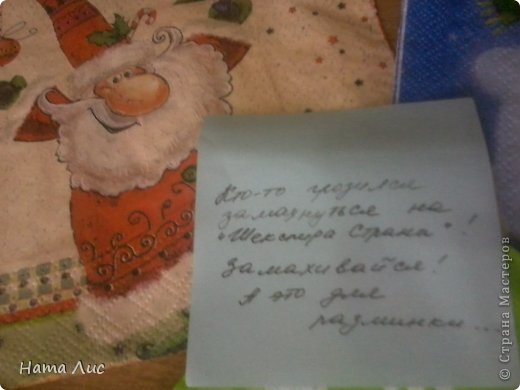 Кто-то грозился
замахнуться на
"Шекспира Страна"!
Замахивайся!
А это для
разминки...
Ната Лис
© Страна Мастеров